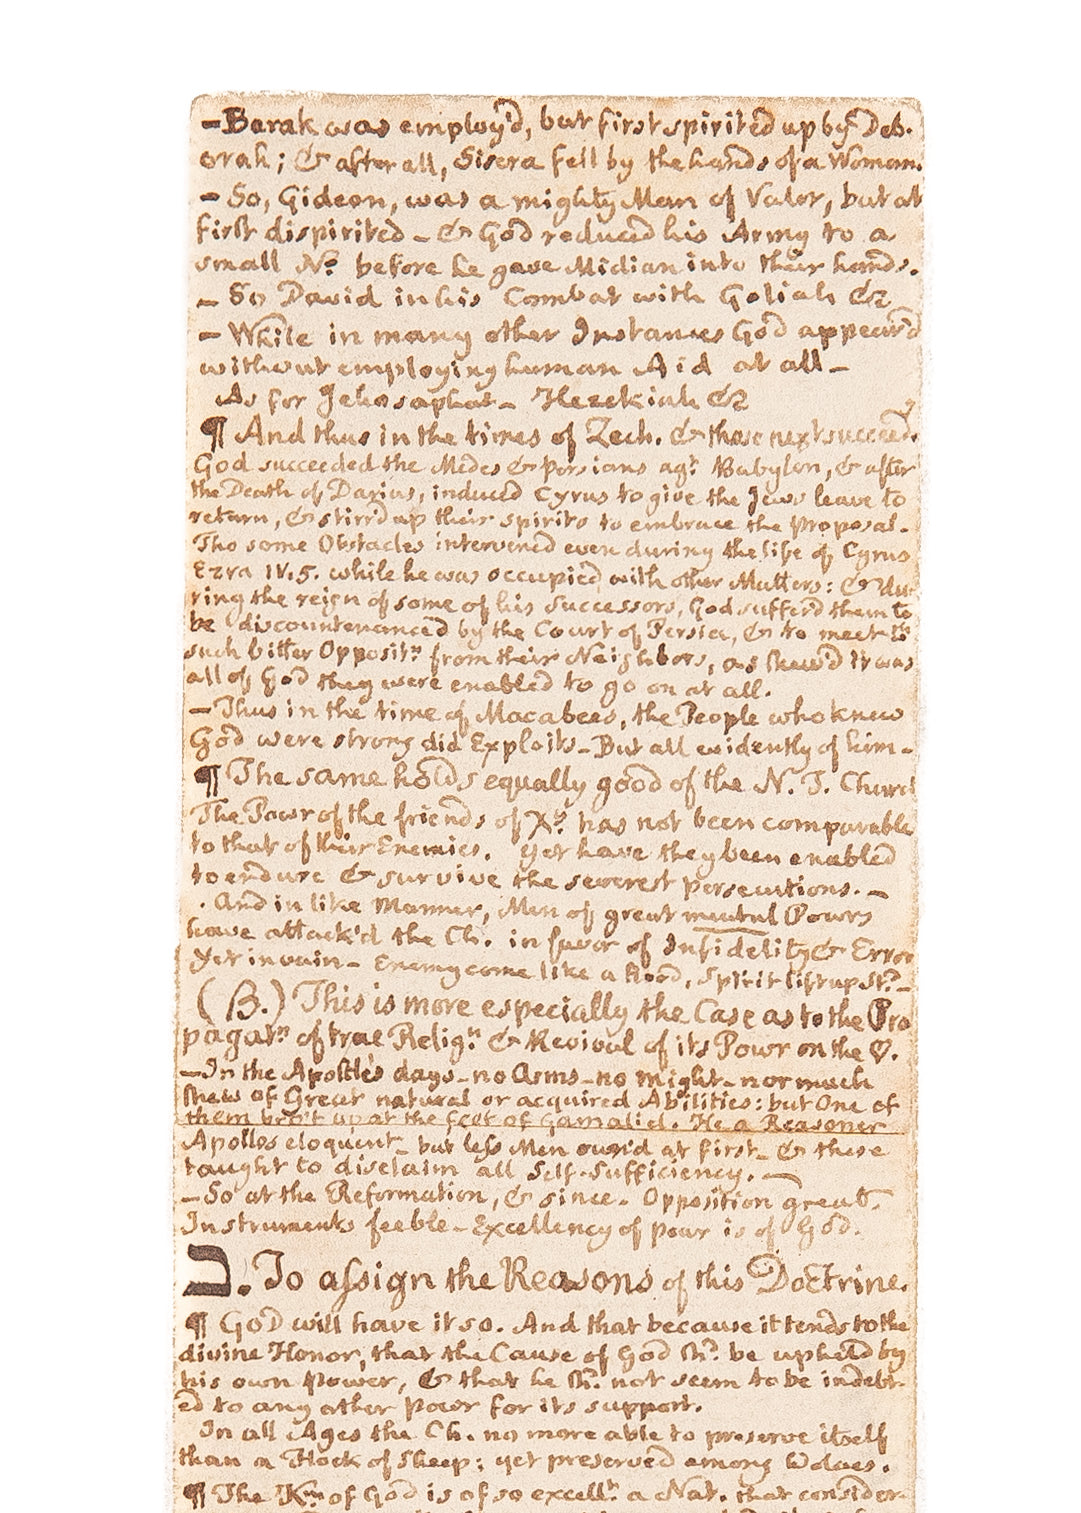 – Barak was employ'd, but first spirited up by Deb-
orah; & after all, Sisera fell by the hands of a Woman.
– So, Gideon, was a mighty Man of Valor, but at
first dispirited – & God reduced his Army to a
small No. before he gave Midian into their hands.
– So David in his Combat with Goliah &c
– While in many other Instances God appear'd
without employing human Aid at all –
As for Jehosaphat – Hezekiah &c
¶ And thus in the times of Zech. & those next succeed.g
God succeeded the Medes & Persians agt. Babylon, & after
the Death of Darius, induced Cyrus to give the Jews leave to
return, & stirr'd up their spirits to embrace the Proposal.
Tho some Obstacles intervened even during the life of Cyrus
Ezra IV.5. while he was occupied with other Matters: & du-
ring the reign of some of his successors, God sufferd them to
be discountenanced by the Court of Persia, & to meet th
such bitter Oppositn. from their Neighbors, as shew'd it was
all of God they were enabled to go on at all.
– Thus in the time of Macabees, the People who knew
God were strong did Exploits – But all evidently of him –
¶ The same holds equally good of the N. T. Church
The Powr of the friends of Xt. has not been comparable
to that of their Enemies. Yet have they been enabled
to endure & survive the severest persecutions. –
. And in like Manner, Men of great mental Powrs
have attack'd the Ch. in favor of Infidelity & Error
Yet in vain – Enemy come like a flood, Spirit lift up St.d –
(B.) This is more especially the Case as to the Pro
pagatn. of true Relign. & Revival of its Powr on the ♡.
– In the Apostle's days – no Arms – no might – nor much
shew of Great natural or acquired Abilities: but One of
them bro't up at the feet of Gamaliel. He a Reasoner
Apollos eloquent – but less Men own'd at first – & these
taught to disclaim all Self-sufficiency. –
– So at the Reformation, & since. Opposition great.
Instruments feeble – Excellency of powr is of God.
ב. To assign the Reasons of this Doctrine.
¶ God will have it so. And that because it tends to the
divine Honor, that the Cause of God shd. be upheld by
his own Power, & that he sh. not seem to be indebt-
ed to any other Powr for its support.
In all Ages the Ch. no more able to preserve itself
than a Flock of Sheep; yet preserved among Wolves.
¶ The Km of God is of so excellt. a Nat. that consider-